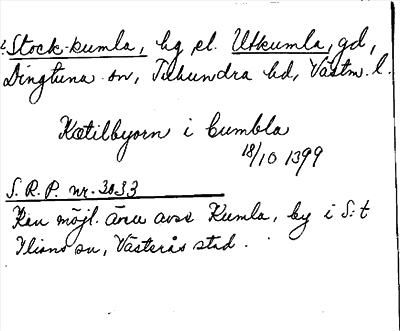 ? Stock-kumla, by el. Utkumla, gd,
Dingtuna sn, Tuhundra hd, Västm. l.
Kætilbyorn i cumbla
18/10 1399
S. R. P. nr. 3033
Kan möjl. även avse Kumla, by i S:t
Ilians sn, Västerås stad.